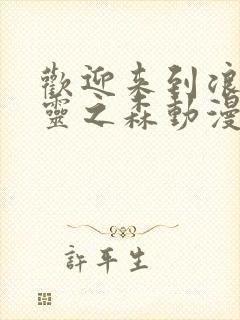 歡迎來到浪
靈之森動漫
許平生